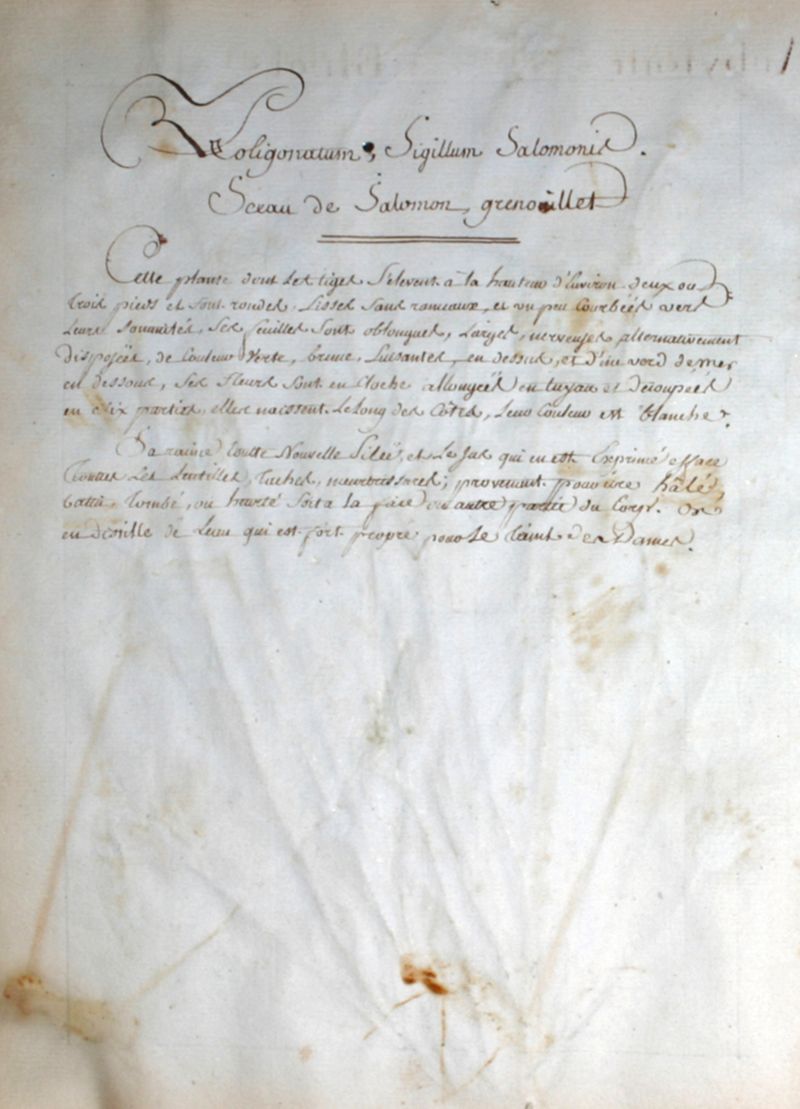 1
Poligonatum, Sigillum Salomonis.
Sceau de Salomon, grenouillet
Cette plante dont Les tiges S'elevent à la hauteur d'Environ deux ou
trois pieds et sont rondes Lisses Sans rameaux, et un peu Courbées vers
Leurs Sommités, Ses feuilles Sont oblongues, Larges, nerveuses alternativement
disposées, de Couleur Verte, brune, Luisantes, en dessus, et d'un verd de mer
en dessous, Ses fleurs Sont en Cloche allongées en tuyau et découpées
en Six parties, elles naissent Le Long des Côtes, Leur Couleur est blanche.
Sa racine toutte Nouvelle Pilée, et Le Jus qui en est Exprimé efface
touttes Les Lentilles, taches, meurtrissures; provenant pour être hâlé,
battu, tombé, ou heurté Soit a la face ou autre partie du Corps. On
en distille de Leau qui est fort propre pour Le teint des Dames.